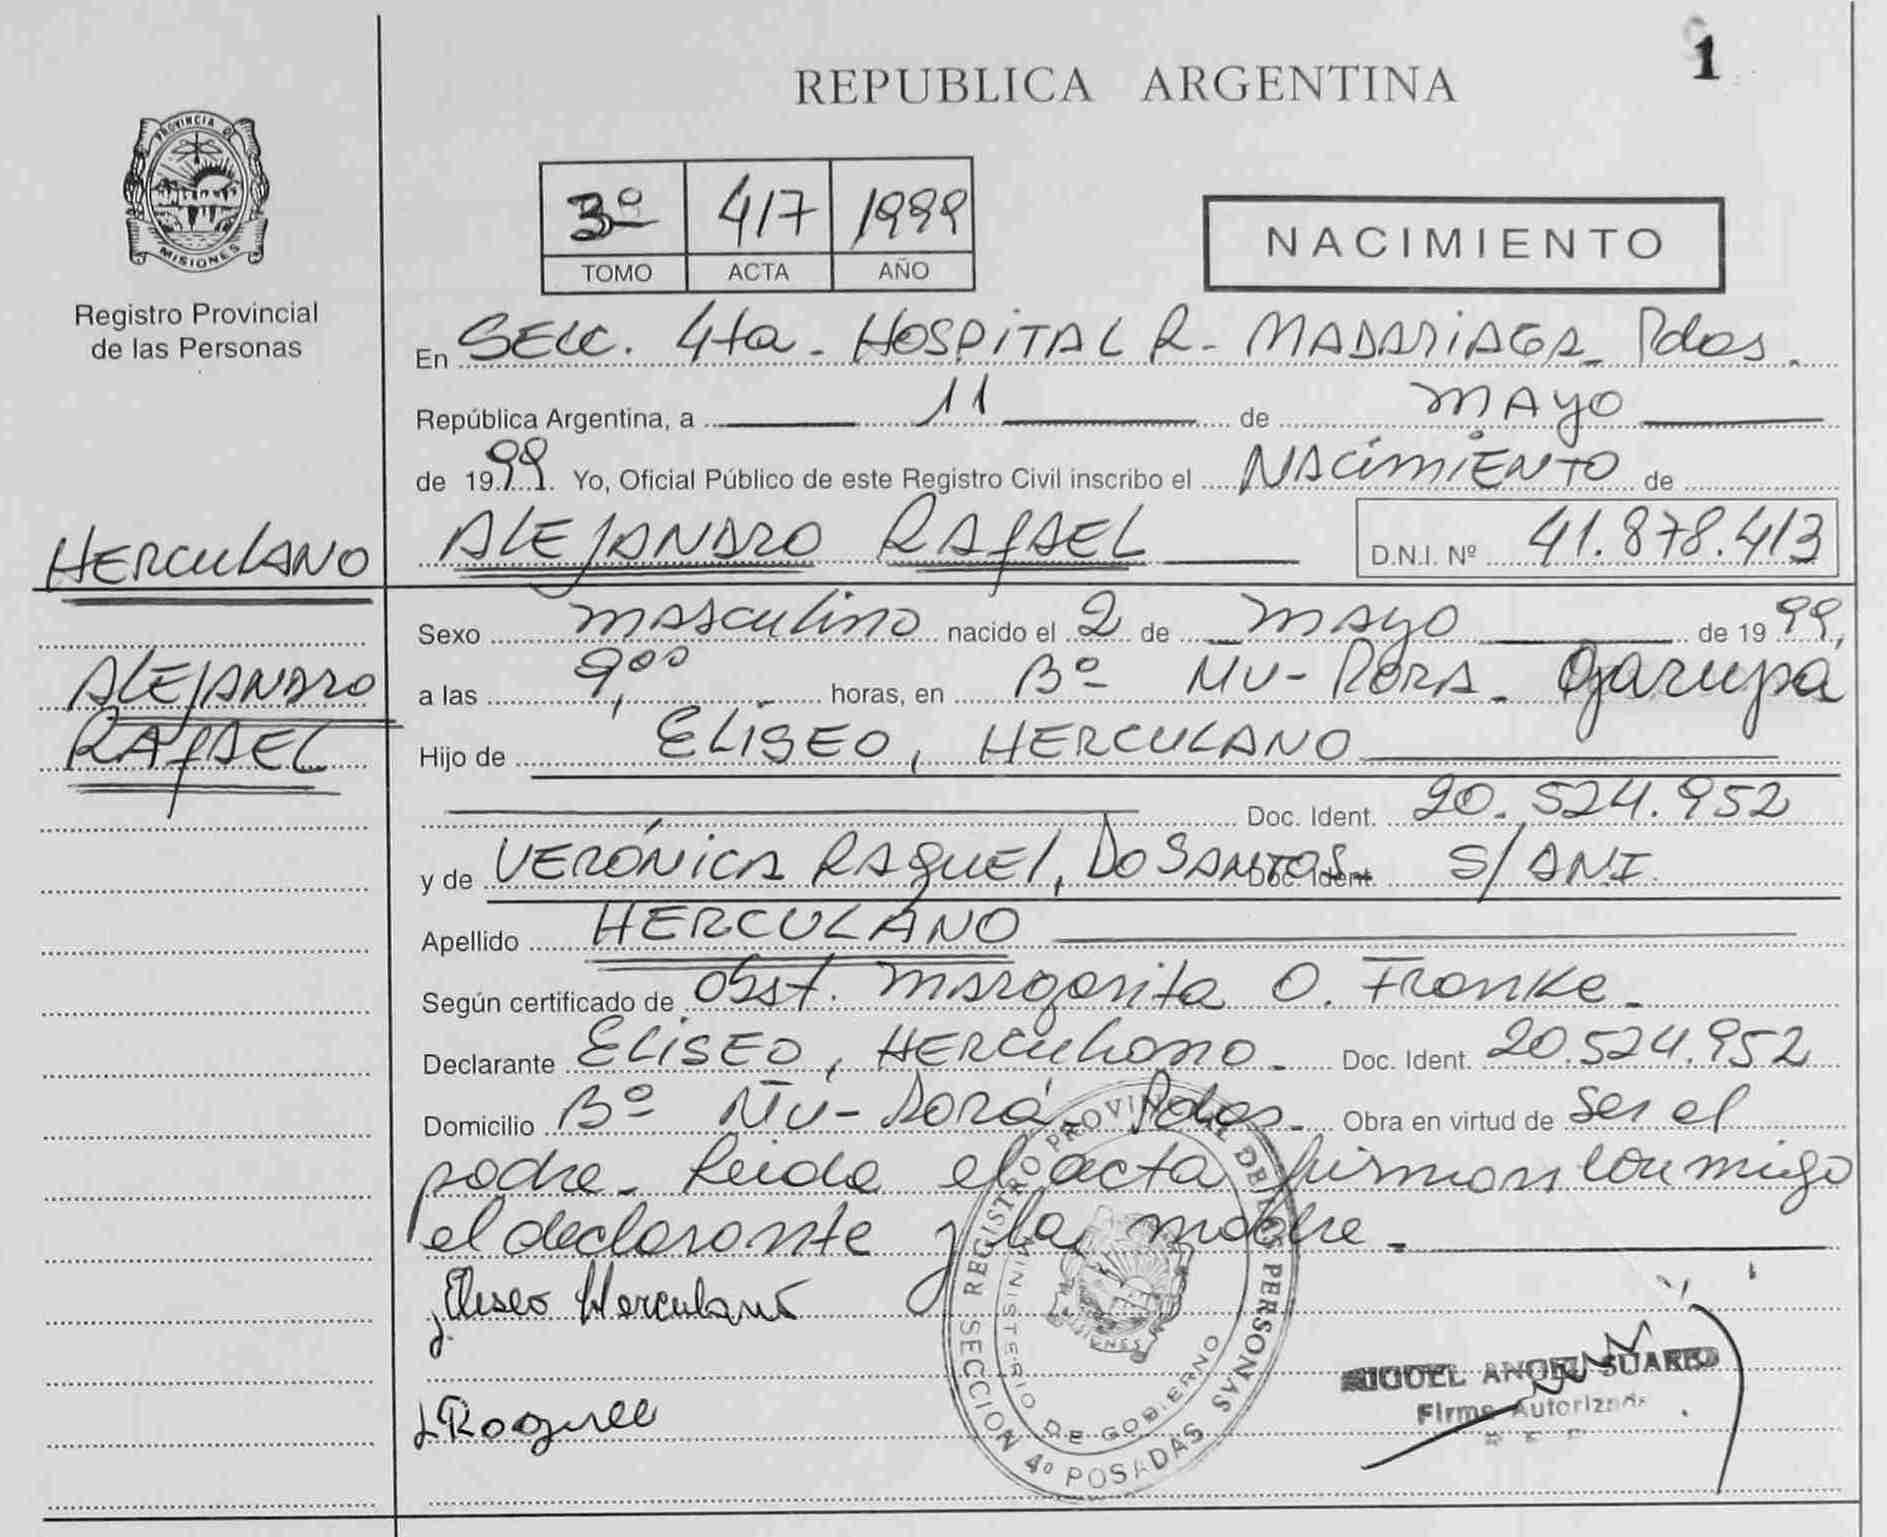 1
REPUBLICA ARGENTINA
PROVINCIA DE
MISIONES
Registro Provincial
de las Personas
3º 417 1999
TOMO ACTA AÑO
NACIMIENTO
En Secc. 4ta - HOSPITAL R. MADARIAGA - Pdas.
República Argentina, a 11 de MAYO
de 1999. Yo, Oficial Público de este Registro Civil inscribo el NACIMIENTO de
HERCULANO
ALEJANDRO RAFAEL D.N.I. Nº 41.878.413
Sexo masculino nacido el 2 de mayo de 1999,
ALEJANDRO
RAFAEL
a las 9,00 horas, en Bº ÑU-PORA - Garupa
Hijo de ELISEO, HERCULANO
Doc. Ident. 20.524.952
y de VERÓNICA RAQUEL, DO SANTOS - Doc. Ident. S/DNI.
Apellido HERCULANO
Según certificado de Obst. Margarita O. Franke.
Declarante ELISEO, HERCULANO - Doc. Ident. 20.524.952
Domicilio Bº ÑU-PORÁ - Pdas. Obra en virtud de ser el
padre - Leída el acta firman conmigo
el declarante y la madre.
Eliseo Herculano
REGISTRO PROVINCIAL DE LAS PERSONAS
MINISTERIO DE GOBIERNO
SECCION 4º POSADAS
MIGUEL ANGEL SUAREZ
Firma Autorizada